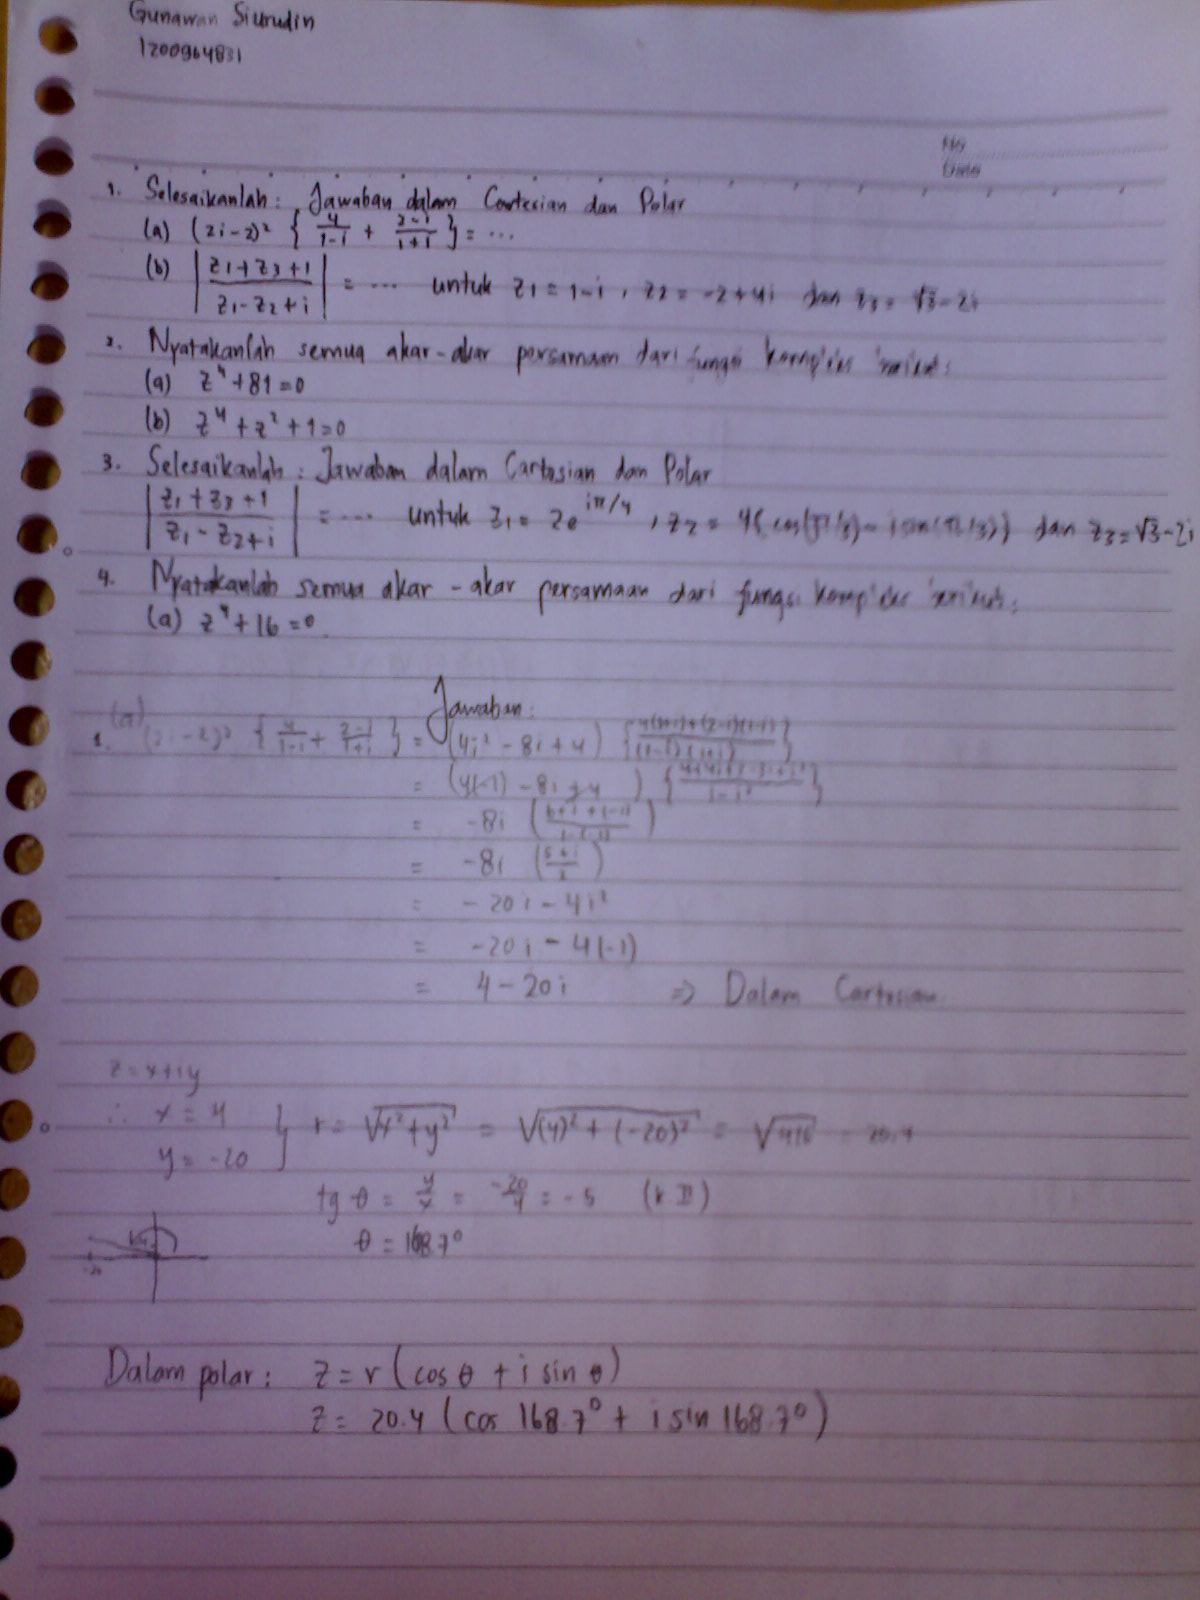 Gunawan Siurudin
1200964831
No
Date
1. Selesaikanlah: Jawaban dalam Cartesian dan Polar
(a) (2i-2)² { 4/1-i + 2-i/1+i } = ...
(b) | z1+z3+1 / z1-z2+i | = ... untuk z1 = 1-i, z2 = -2+4i dan z3 = √3-2i
2. Nyatakanlah semua akar-akar persamaan dari fungsi kompleks
(a) z⁴+81=0
(b) z⁴+z²+1=0
3. Selesaikanlah: Jawaban dalam Cartesian dan Polar
| z1+z3+1 / z1-z2+i | = ... untuk z1 = 2e^iπ/4, z2 = 4( cos(π/3) - i sin(π/3)) dan z3=√3-2i
4. Nyatakanlah semua akar-akar persamaan dari fungsi kompleks
(a) z⁴+16=0
Jawaban:
1. (a) (2i-2)² { 4/1-i + 2-i/1+i } = (4i²-8i+4) { 4(1+i)+(2-i)(1-i) / (1-i)(1+i) }
= (4(-1)-8i+4)
= -8i
= -8i (5+i/2)
= -20i-4i²
= -20i-4(-1)
= 4-20i ⇒ Dalam Cartesian
z=x+iy
∴ x = 4
y = -20 } r = √x²+y² = √(4)²+(-20)² = √416 = 20.4
tg θ = y/x = -20/4 = -5 (k II)
θ = 168.7°
-20
Dalam polar: z = r (cos θ + i sin θ)
z = 20.4 (cos 168.7° + i sin 168.7°)